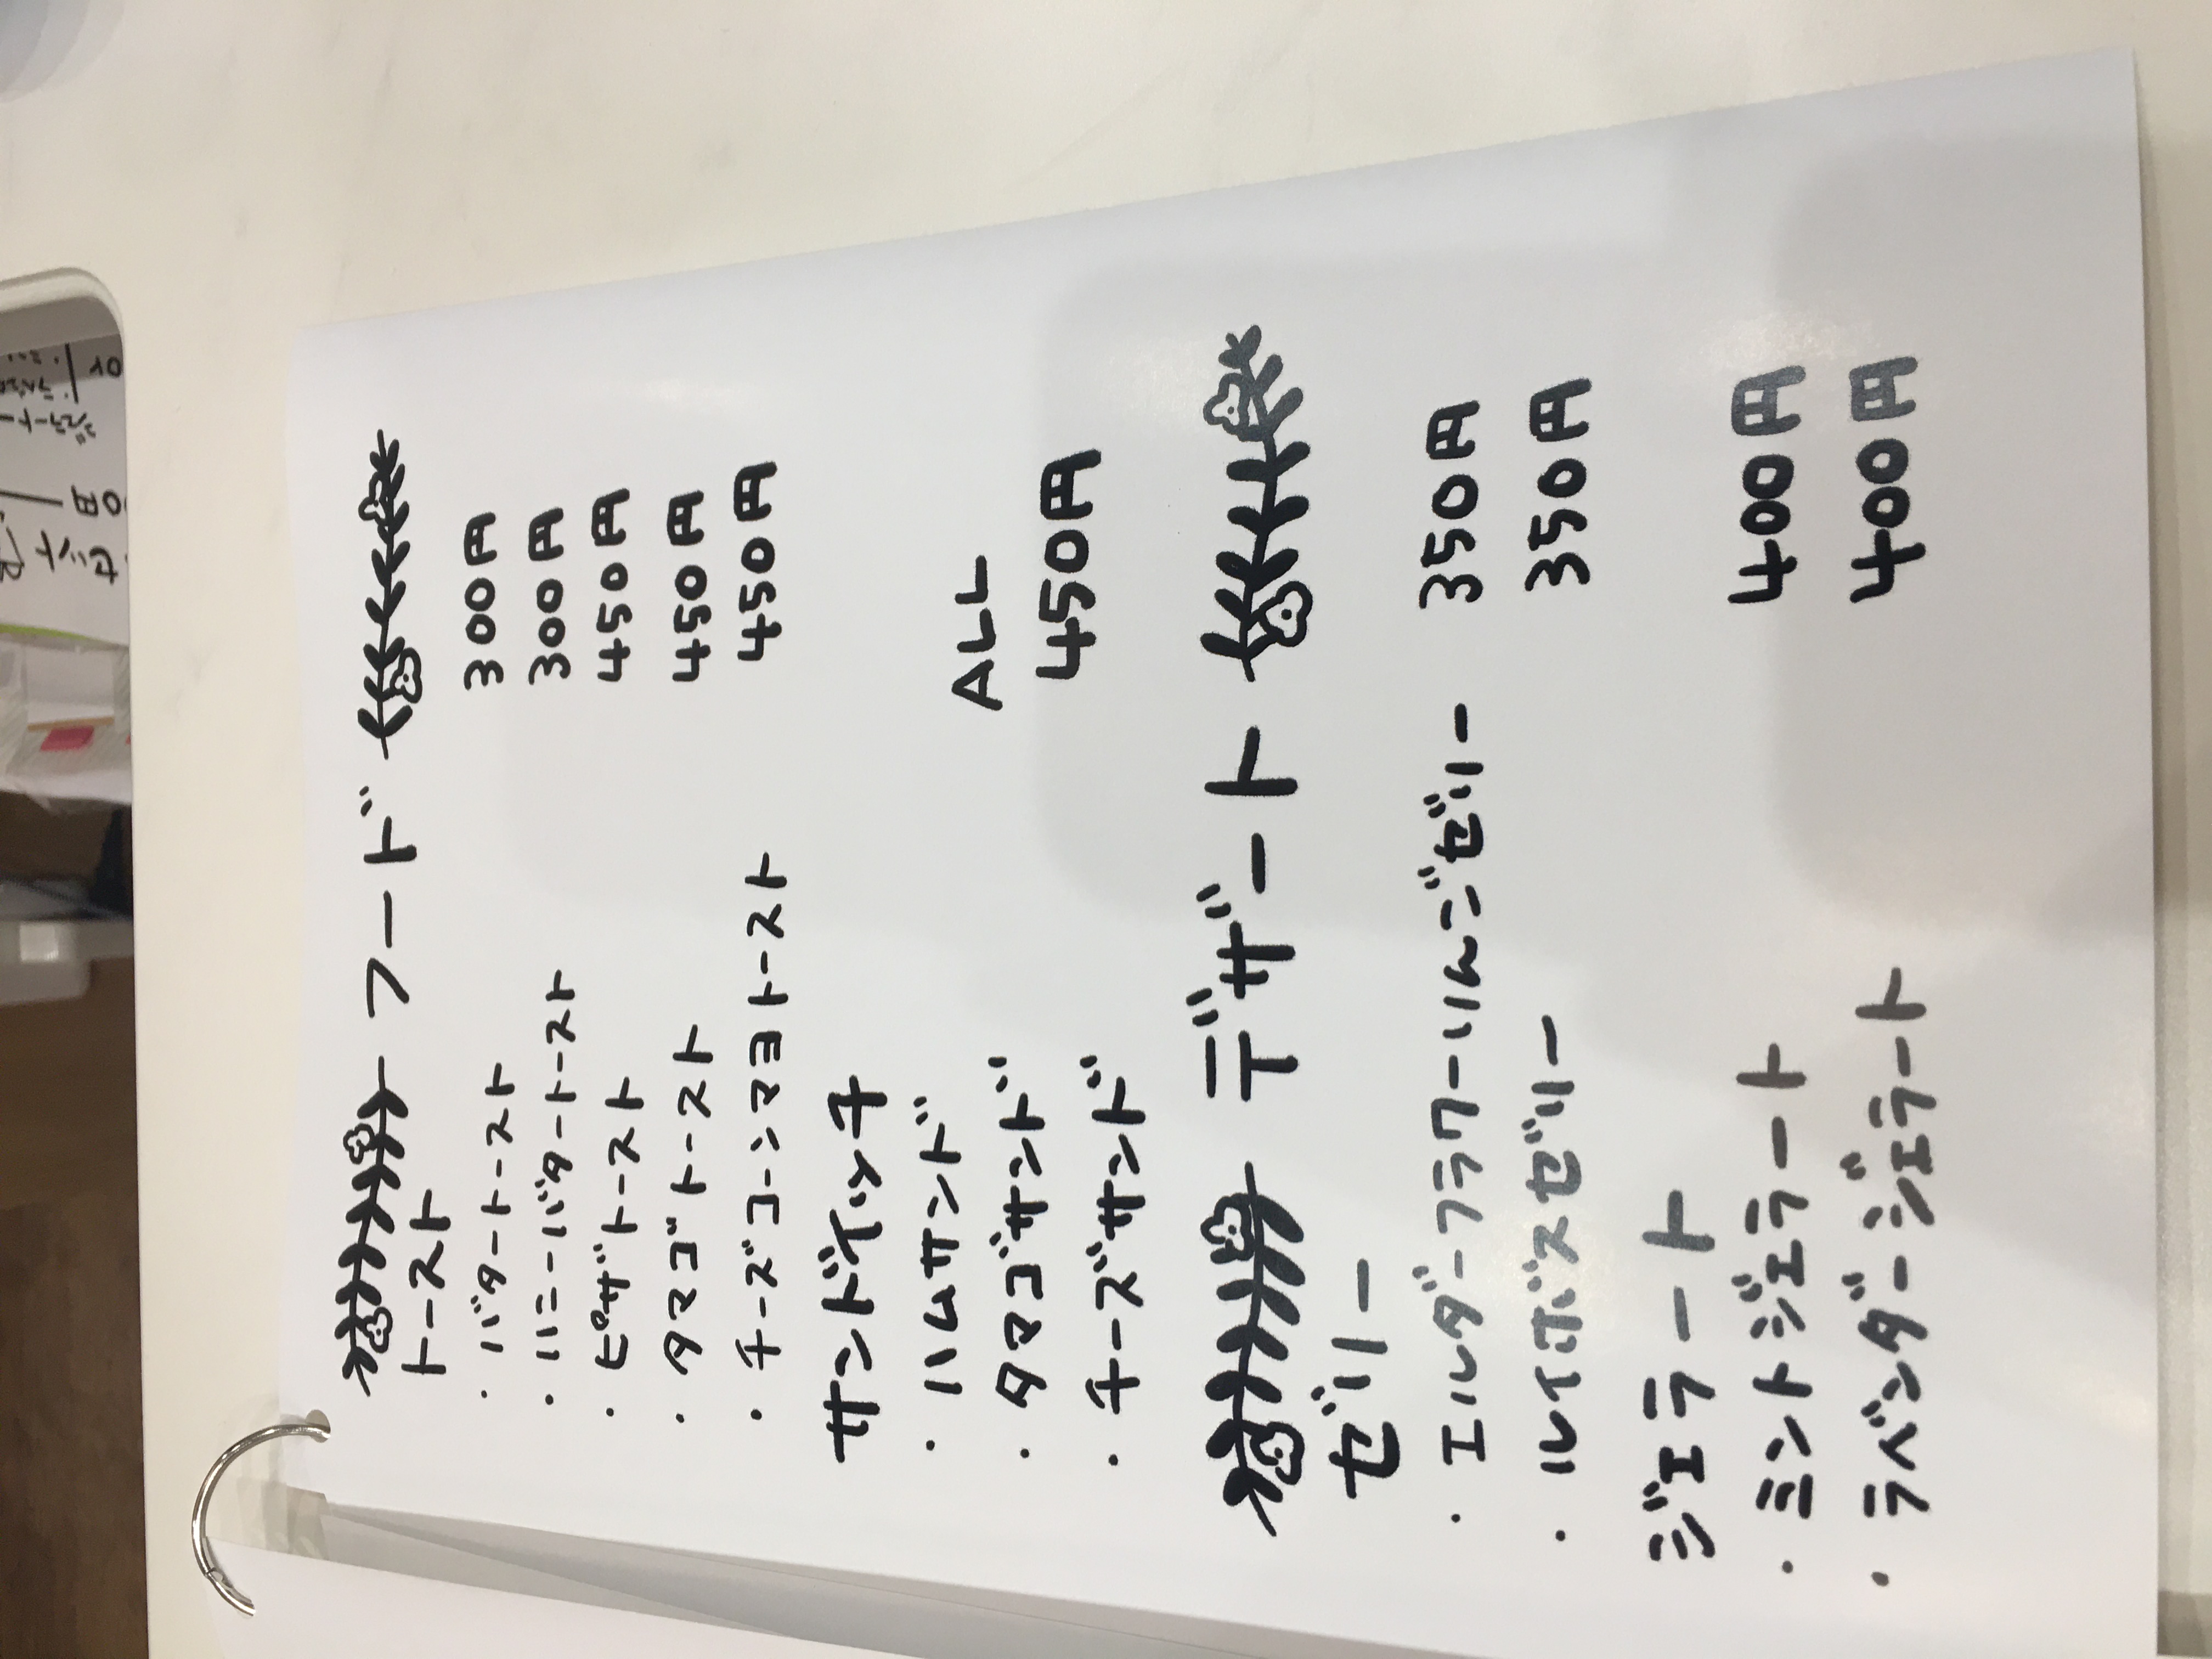 フード
トースト
・バタートースト 300円
・ハニーバタートースト 300円
・ピザトースト 450円
・タマゴトースト 450円
・チーズコーンマヨトースト 450円
サンドイッチ
・ハムサンド ALL
・タマゴサンド 450円
・チーズサンド
デザート
ゼリー
・エルダーフラワーりんごゼリー 350円
・ルイボスゼリー 350円
ジェラート
・ミントジェラート 400円
・ラベンダージェラート 400円
セット
ジェラート
or